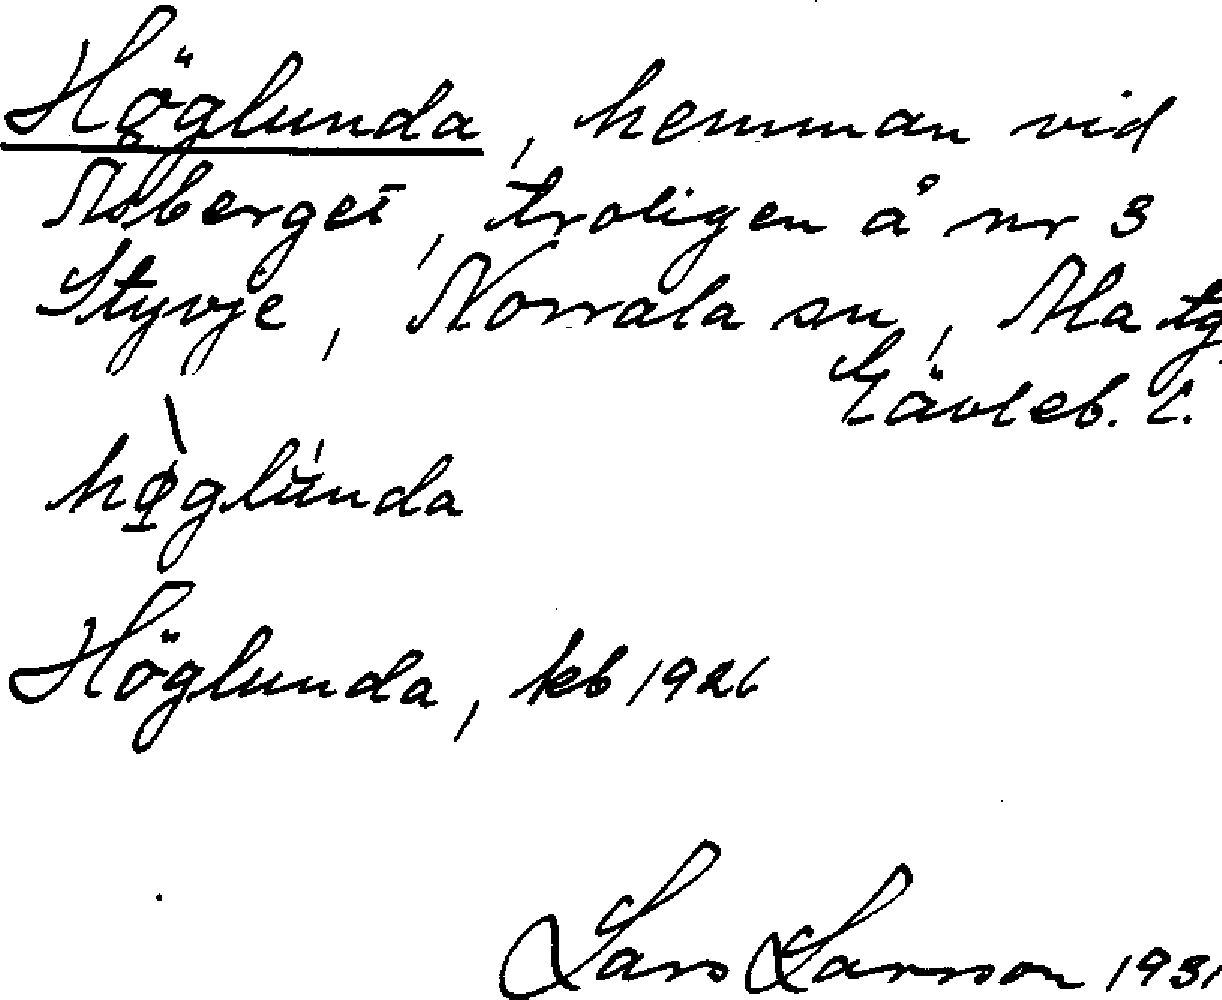 Höglunda, hemman vid
Åsberget, troligen å nr 3
Styvje, Norrala sn, Ala tg
Gävleb. l.
høglúnda
Höglunda, kb 1926
Lars Larsson 1931